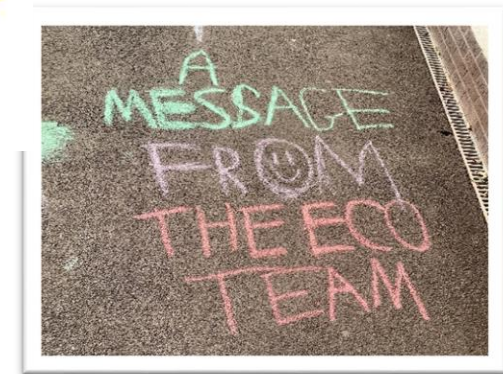 A
MESSAGE
FROM
THE ECO
TEAM